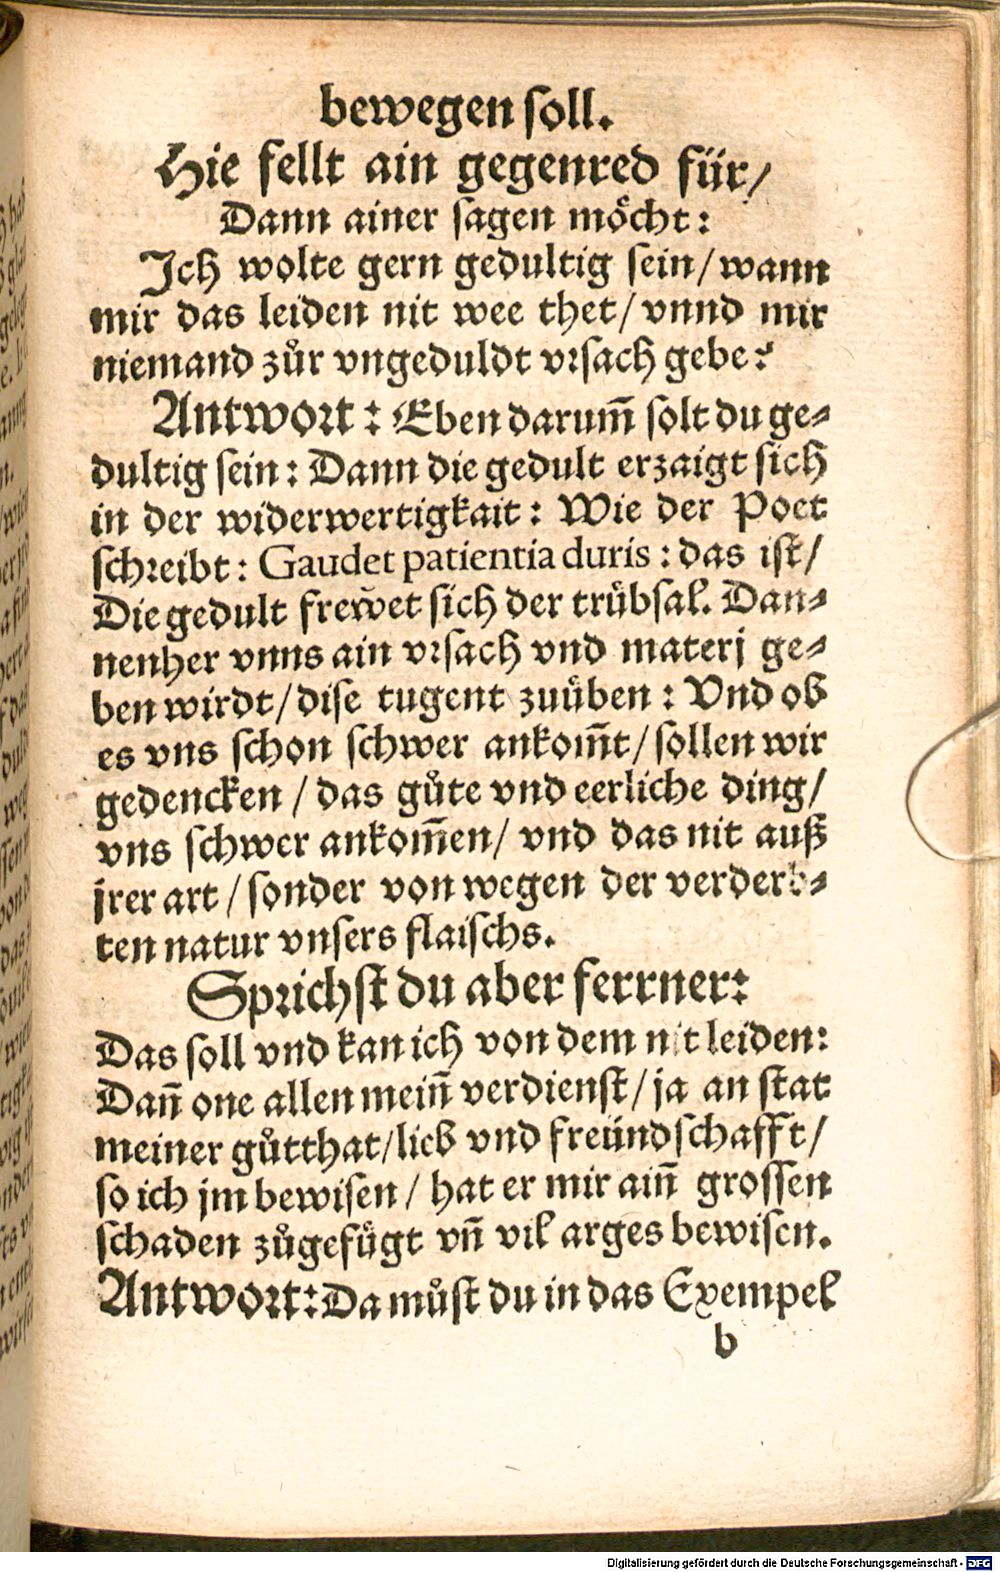 bewegen soll.
Hie fellt ain gegenred für/
Dann ainer sagen möcht:
Ich wolte gern gedultig sein/wann
mir das leiden nit wee thet/ vnnd mir
niemand zůr vngeduldt vrsach gebe?
Antwort: Eben darum̃ solt du ge-
dultig sein: Dann die gedult erzaigt sich
in der widerwertigkait: Wie der Poet
schreibt: Gaudet patientia duris: das ist/
Die gedult frew̃et sich der trübsal. Dan-
nenher vnns ain vrsach vnd materj ge-
ben wirdt/dise tugent zuüben: Vnd ob
es vns schon schwer ankom̃t/sollen wir
gedencken/ das gůte vnd eerliche ding/
vns schwer ankom̃en/ vnd das nit auß
jrer art/sonder von wegen der verderb-
ten natur vnsers flaischs.
Sprichst du aber ferrner:
Das soll vnd kan ich von dem nit leiden:
Dañ one allen meiñ verdienst/ja an stat
meiner gůtthat/lieb vnd freündschafft/
so ich jm bewisen/ hat er mir aiñ grossen
schaden zůgefügt vñ vil arges bewisen.
Antwort: Da můst du in das Exempel
b
Digitalisierung gefördert durch die Deutsche Forschungsgemeinschaft - DFG